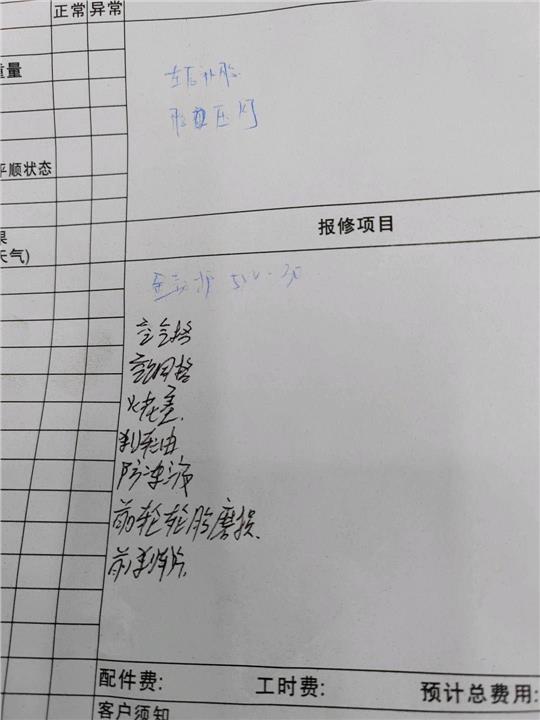 正常 异常
重量
平顺状态
果
天气)
左后补胎
胎压灯
报修项目
保养 5W-30
空气格
空调格
火花塞.
刹车油
防冻液
前轮轮胎磨损.
前刹车片.
配件费: 工时费: 预计总费用:
客户须知